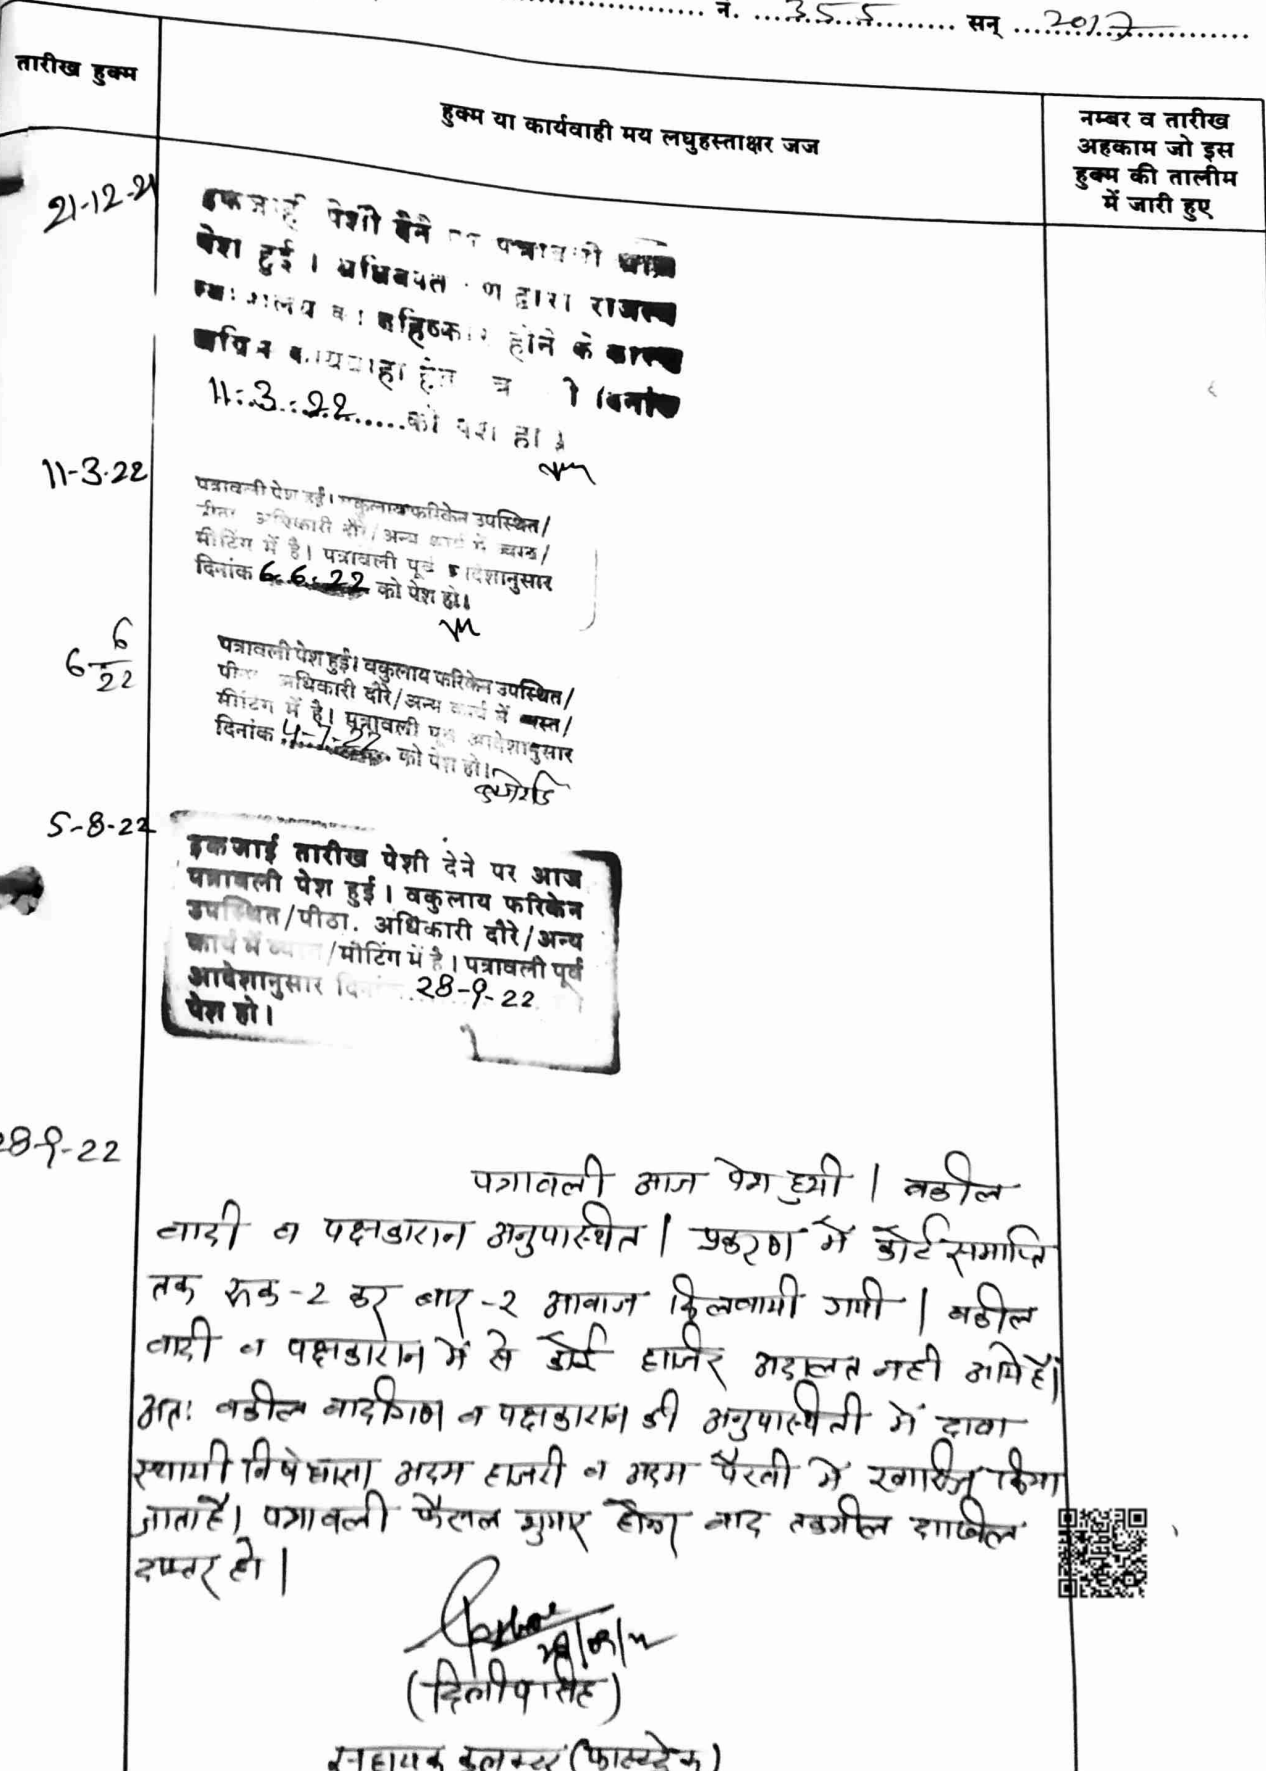 नं. 355 सन् 2017
तारीख हुक्म
हुक्म या कार्यवाही मय लघुहस्ताक्षर जज
नम्बर व तारीख
अहकाम जो इस
हुक्म की तालीम
में जारी हुए
21-12-21
इकजाई पेशी देने पर पत्रावली आज
पेश हुई । अभिभाषकगण द्वारा राजस्व
न्यायालय का बहिष्कार होने के कारण
अग्रिम कार्यवाही हेतु दिनांक
11.3.22 को पेश हो ।
11-3-22
पत्रावली पेश हुई। वकुलाय फरिकेन उपस्थित/
पीठा. अधिकारी दौरे/अन्य कार्य में व्यस्त/
मीटिंग में है। पत्रावली पूर्व आदेशानुसार
दिनांक 6.6.22 को पेश हो।
6 6/22
पत्रावली पेश हुई। वकुलाय फरिकेन उपस्थित/
पीठा. अधिकारी दौरे/अन्य कार्य में व्यस्त/
मीटिंग में है। पत्रावली पूर्व आदेशानुसार
दिनांक 4-7-22 को पेश हो।
5-8-22
इकजाई तारीख पेशी देने पर आज
पत्रावली पेश हुई । वकुलाय फरिकेन
उपस्थित/पीठा. अधिकारी दौरे/अन्य
कार्य में व्यस्त/मीटिंग में है । पत्रावली पूर्व
आदेशानुसार दिनांक 28-9-22 को
पेश हो ।
28-9-22
पत्रावली आज पेश हुयी । वकील
वादी व पक्षकारान अनुपास्थित । प्रकरण में कोर्ट समाप्ति
तक रूक-2 कर बार-2 आवाज दिलवायी गयी । वकील
वादी व पक्षकारान में से कोई हाजिर अदालत नही आये है।
अतः वकील वादीगण व पक्षकारान की अनुपास्थिती में दावा
स्थायी निषेधाज्ञा अदम हाजरी व अदम पैरवी में खारिज किया
जाता है। पत्रावली फैसल शुमार होकर बाद तकमील दाखिल
दफ्तर हो ।
(दिलीप सिंह)
सहायक कलक्टर (फास्टट्रेक)